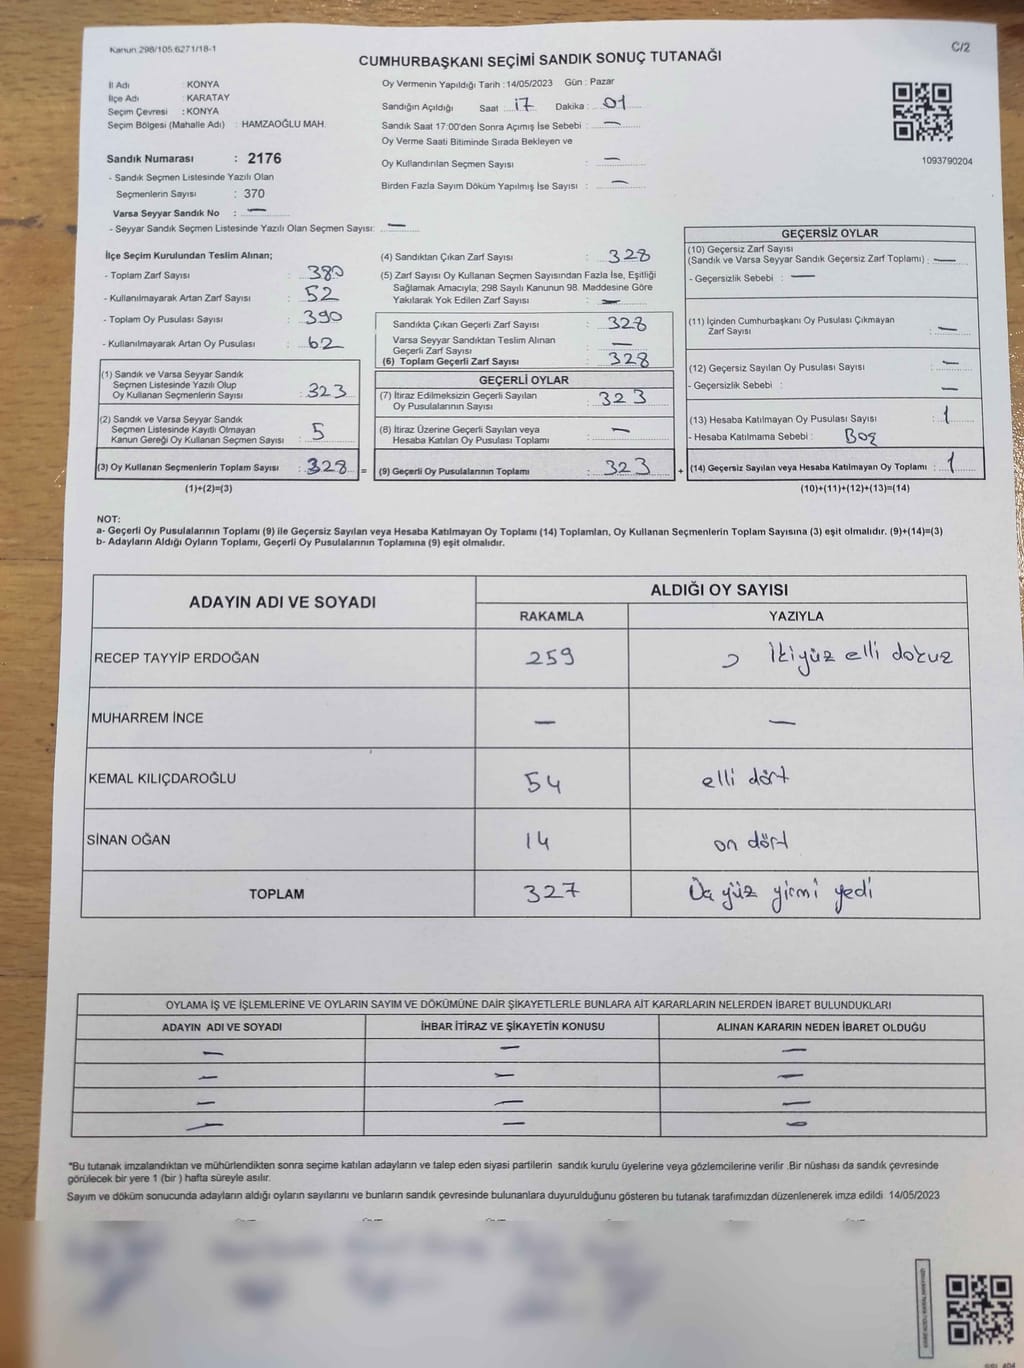 Kanun 298/105 6271/18-1
C/2
CUMHURBAŞKANI SEÇİMİ SANDIK SONUÇ TUTANAĞI
İl Adı : KONYA
İlçe Adı : KARATAY
Seçim Çevresi : KONYA
Seçim Bölgesi (Mahalle Adı) : HAMZAOĞLU MAH.
Sandık Numarası : 2176
- Sandık Seçmen Listesinde Yazılı Olan
Seçmenlerin Sayısı : 370
Varsa Seyyar Sandık No : —
- Seyyar Sandık Seçmen Listesinde Yazılı Olan Seçmen Sayısı: —
Oy Vermenin Yapıldığı Tarih : 14/05/2023 Gün : Pazar
Sandığın Açıldığı Saat : 17 Dakika : 01
Sandık Saat 17:00'den Sonra Açımış İse Sebebi : —
Oy Verme Saati Bitiminde Sırada Bekleyen ve
Oy Kullandırılan Seçmen Sayısı : —
Birden Fazla Sayım Döküm Yapılmış İse Sayısı : —
1093790204
İlçe Seçim Kurulundan Teslim Alınan;
- Toplam Zarf Sayısı : 380
- Kullanılmayarak Artan Zarf Sayısı : 52
- Toplam Oy Pusulası Sayısı : 390
- Kullanılmayarak Artan Oy Pusulası : 62
(1) Sandık ve Varsa Seyyar Sandık
Seçmen Listesinde Yazılı Olup
Oy Kullanan Seçmenlerin Sayısı : 323
(2) Sandık ve Varsa Seyyar Sandık
Seçmen Listesinde Kayıtlı Olmayan
Kanun Gereği Oy Kullanan Seçmen Sayısı : 5
(3) Oy Kullanan Seçmenlerin Toplam Sayısı : 328 =
(1)+(2)=(3)
(4) Sandıktan Çıkan Zarf Sayısı : 328
(5) Zarf Sayısı Oy Kullanan Seçmen Sayısından Fazla İse, Eşitliği
Sağlamak Amacıyla; 298 Sayılı Kanunun 98. Maddesine Göre
Yakılarak Yok Edilen Zarf Sayısı : —
Sandıkta Çıkan Geçerli Zarf Sayısı : 328
Varsa Seyyar Sandıktan Teslim Alınan
Geçerli Zarf Sayısı : —
(6) Toplam Geçerli Zarf Sayısı : 328
GEÇERLİ OYLAR
(7) İtiraz Edilmeksizin Geçerli Sayılan
Oy Pusulalarının Sayısı : 323
(8) İtiraz Üzerine Geçerli Sayılan veya
Hesaba Katılan Oy Pusulası Toplamı : —
(9) Geçerli Oy Pusulalarının Toplamı : 323 +
GEÇERSİZ OYLAR
(10) Geçersiz Zarf Sayısı
(Sandık ve Varsa Seyyar Sandık Geçersiz Zarf Toplamı) : —
- Geçersizlik Sebebi : —
(11) İçinden Cumhurbaşkanı Oy Pusulası Çıkmayan
Zarf Sayısı : —
(12) Geçersiz Sayılan Oy Pusulası Sayısı : —
- Geçersizlik Sebebi : —
(13) Hesaba Katılmayan Oy Pusulası Sayısı : 1
- Hesaba Katılmama Sebebi : Boş
(14) Geçersiz Sayılan veya Hesaba Katılmayan Oy Toplamı : 1
(10)+(11)+(12)+(13)=(14)
NOT:
a- Geçerli Oy Pusulalarının Toplamı (9) ile Geçersiz Sayılan veya Hesaba Katılmayan Oy Toplamı (14) Toplamları, Oy Kullanan Seçmenlerin Toplam Sayısına (3) eşit olmalıdır. (9)+(14)=(3)
b- Adayların Aldığı Oyların Toplamı, Geçerli Oy Pusulalarının Toplamına (9) eşit olmalıdır.
ADAYIN ADI VE SOYADI ALDIĞI OY SAYISI
RAKAMLA YAZIYLA
RECEP TAYYİP ERDOĞAN 259 İkiyüz elli dokuz
MUHARREM İNCE — —
KEMAL KILIÇDAROĞLU 54 elli dört
SİNAN OĞAN 14 on dört
TOPLAM 327 Üç yüz yirmi yedi
OYLAMA İŞ VE İŞLEMLERİNE VE OYLARIN SAYIM VE DÖKÜMÜNE DAİR ŞİKAYETLERLE BUNLARA AİT KARARLARIN NELERDEN İBARET BULUNDUKLARI
ADAYIN ADI VE SOYADI İHBAR İTİRAZ VE ŞİKAYETİN KONUSU ALINAN KARARIN NEDEN İBARET OLDUĞU
— — —
— — —
— — —
— — —
*Bu tutanak imzalandıktan ve mühürlendikten sonra seçime katılan adayların ve talep eden siyasi partilerin sandık kurulu üyelerine veya gözlemcilerine verilir .Bir nüshası da sandık çevresinde
görülecek bir yere 1 (bir ) hafta süreyle asılır.
Sayım ve döküm sonucunda adayların aldığı oyların sayılarını ve bunların sandık çevresinde bulunanlara duyurulduğunu gösteren bu tutanak tarafımızdan düzenlenerek imza edildi 14/05/2023